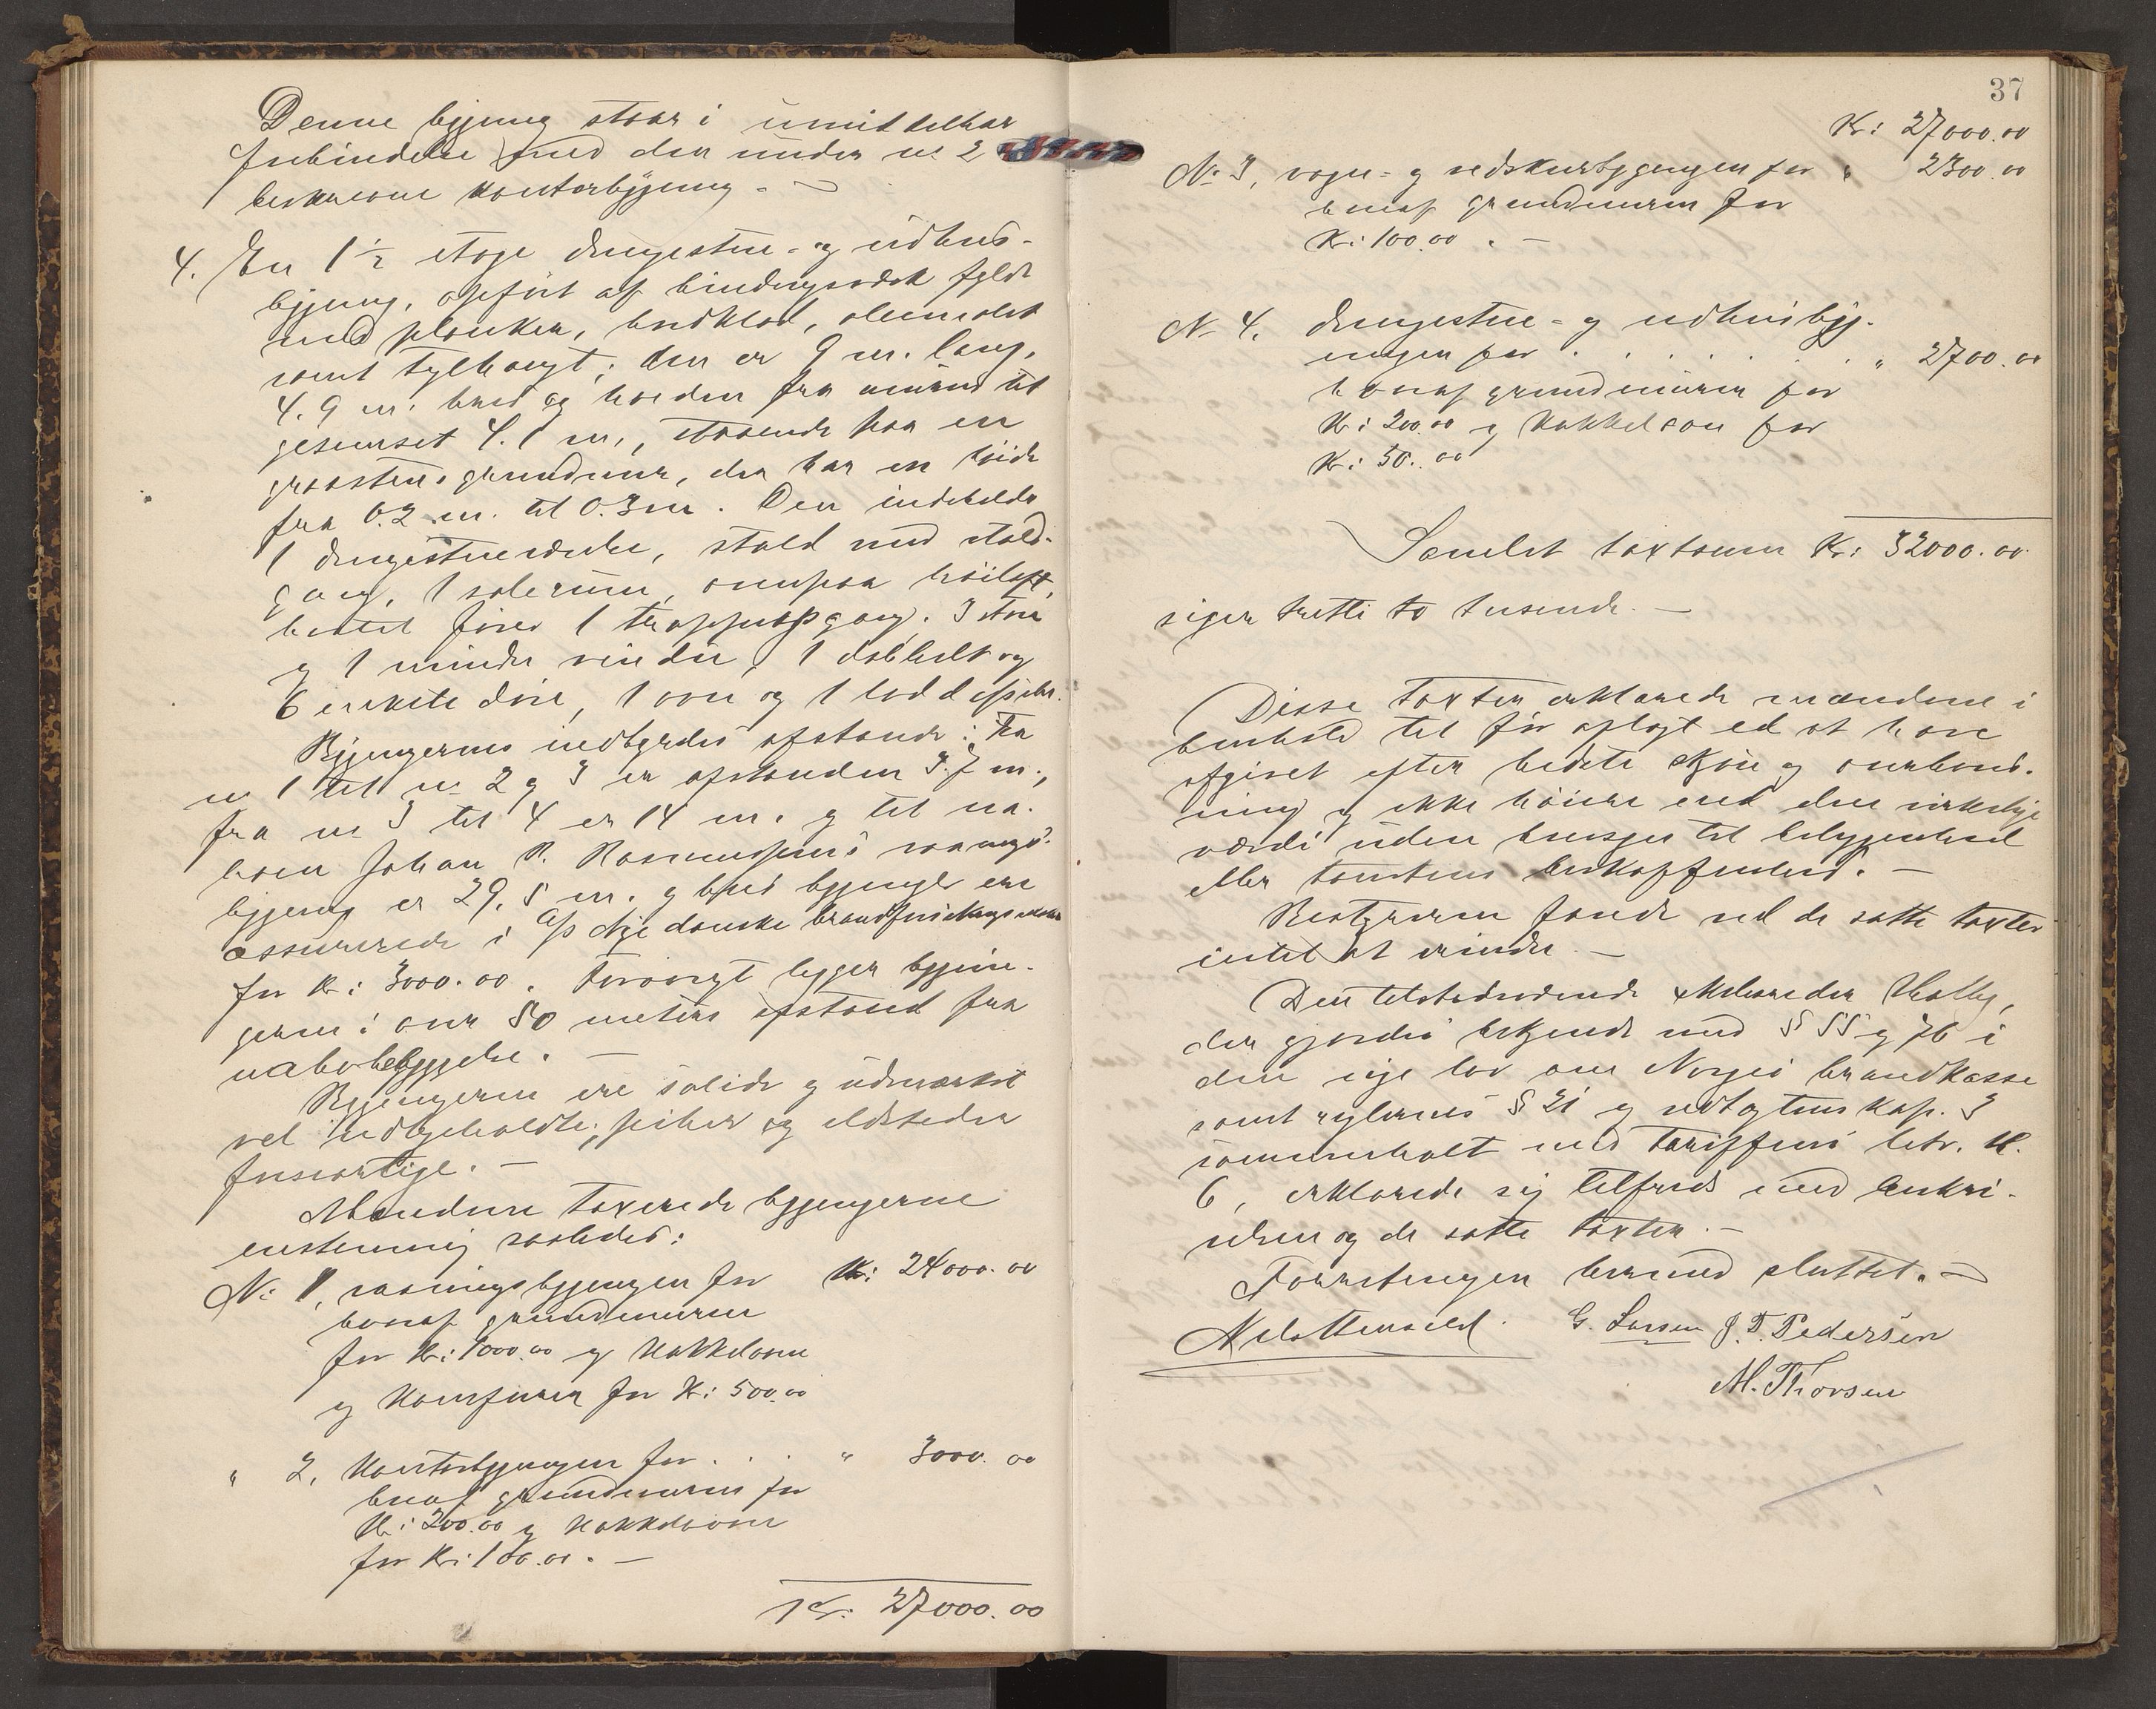 Denne bygning staar i umiddelbar
forbindelse med den under no 2
beskrevne kontorbygning. —
4. En 1½ etage drengestue- og udhus-
bygning, opført af bindingsværk fyldt
med planker, bordklædt, oliemalet
samt tegltækt; den er 9 m. lang,
4.9 m. bred og høiden fra mur til
gesimset 4.1 m., staaende paa en
graastens grundmur, der har en høide
fra 0.2 m. til 0.3 m. Den indeholder
1 drengestueværelse, stald med stald-
gang, 1 selerum, ovenpaa høiloft,
hertil fører 1 trappeopgang. 3 store
og 1 mindre vindu, 1 dobbelt og
6 enkelte døre, 1 ovn og 1 lodd es piber.
Bygningernes indbyrdes afstande: fra
no 1 til no 2 og 3 er afstanden 3.7 m.,
fra no 3 til 4 er 14 m. og til na-
boen Johan R. Rasmussens vaanings-
bygning er 29.5 m. og hans bygninger ere
assurerede i A/S Nye danske brandforsikringsselskab
for kr: 3000.00. Forøvrigt ligger bygnin-
gerne i over 50 meters afstand fra
nabobebyggelse. —
Bygningerne ere solide og udmærket
vel vedligeholdte, piber og ildsteder
forsvarlige. —
Mændene taxerede bygningerne
enstemmig saaledes:
No: 1, vaaningsbygningen for kr: 24000.00
heraf grundmuren
for kr: 1000.00 og kakkelovne
og komfurer for kr: 500.00
" 2, kontorbygningen for . . . " 3000.00
heraf grundmuren for
kr: 200.00 og kakkelovne
for kr: 100.00. —
Kr: 27000.00
37
Kr: 27000.00
No 3, vogn- og redskursbygningen for " 2300.00
heraf grundmuren for
kr: 100.00. —
No 4, drengestue- og udhusbyg-
ningen for . . . . . . " 2700.00
heraf grundmuren for
kr: 200.00 og kakkelovn for
kr: 50.00
Samlet taxtsum Kr: 32000.00
siger tretti to tusende. —
Disse taxter erklærede mændene i
henhold til før aflagt ed at have
afgivet efter bedste skjøn og overbevis-
ning og ikke høiere end den virkelige
værdi uden hensyn til beliggenhed
eller tomtens beskaffenhed. —
Bestyreren fandt ved de satte taxter
intet at erindre. —
Den tilstedeværende
der gjordes bekjendt med §§ 55 og 76 i
den nye lov om Norges brandkasse
samt reglernes § 21 og vedtægtens kap. 3
sammenholdt med tariffens litr. H.
6, erklærede sig tilfreds med beskri-
velsen og de satte taxter. —
Forretningen hermed sluttet. —
G. Larsen J. T. Pedersen
M. Thorsen